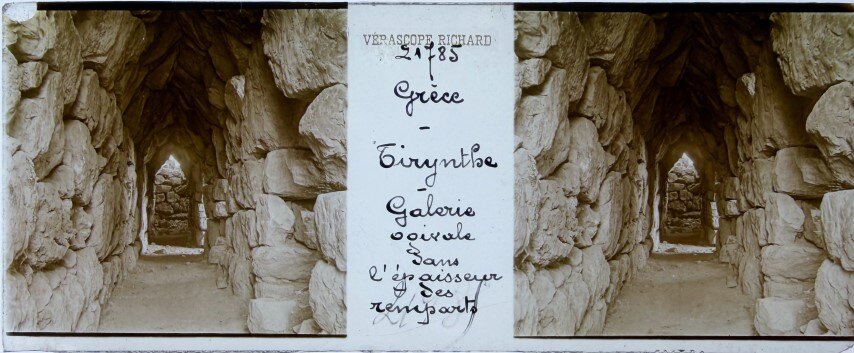 VÉRASCOPE RICHARD
21785
Grèce
-
Tirynthe
-
Galerie
ogivale
dans
l'épaisseur
des
remparts